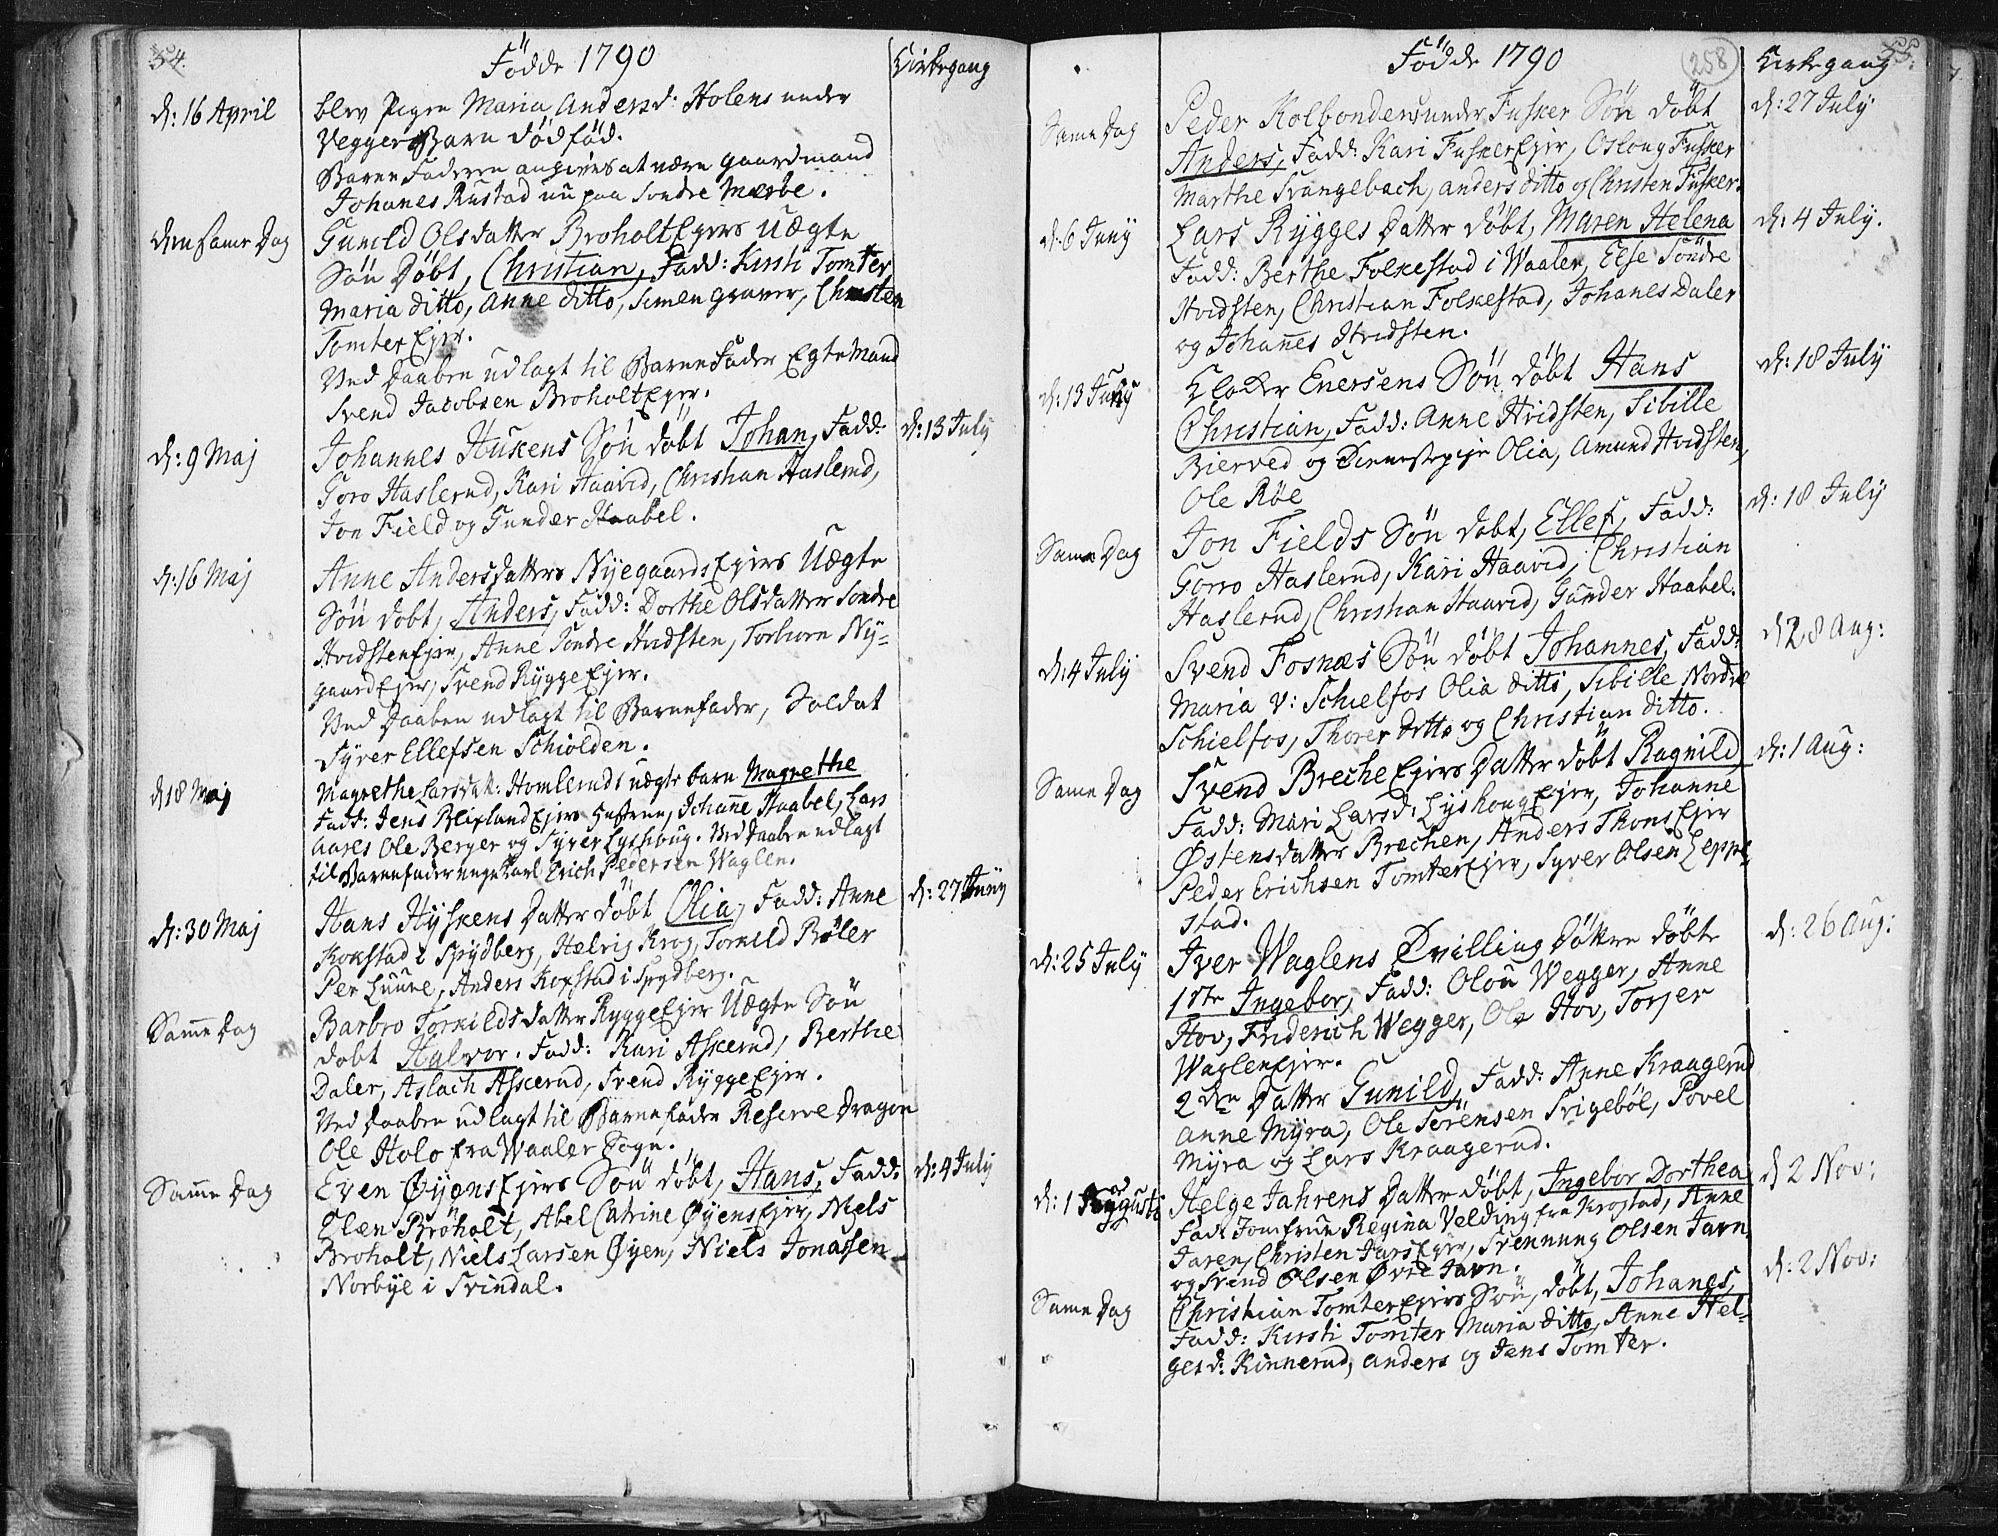 54.
Födde 1790
Kirkegang
d: 16 April
blev Pigen Maria Andersd: Holens under
Vegger Barn dödföd.
Barne Faderen angives at være gaardmand
Johanes Rustad nu paa Sondre Mærbe.
den same Dag
Gunild Olsdatter Broholt Ejers uægte
Sön döbt, Christian, Fadd: Kirsti Tomter
Maria ditto, Anne ditto, Simen graver, Christen
Tomter Ejer.
Ved Daaben udlagt til Barne Fader Egte Mand
Svend Jacobsen Broholt Ejer.
d: 9 Maj
Johannes Hukens Sön döbt Johan, Fadd:
d: 13 July
Goro Haslerud, Kari Haavid, Christian Haslerud,
Jon Field og Gunder Haabel.
d: 16 Maj
Anne Andersdatters Nyegaards Ejers Uægte
Sön döbt, Anders, Fadd: Dorthe Olsdatter Sondre
Hvidsten Ejer, Anne Söndre Hvidsten, Torbiorn Ny-
gaard Ejer, Svend Rygge Ejer.
Ved Daaben udlagt til Barnefader, Soldat
Syver Ellefsen Schiolden.
d 18 Maj
Magrethe Larsdat: Homleruds uægte barn Magrethe
Fadd: Jens Blixland Ejers Hustrue, Johanne Haabel, Lars
Aares Ole Berger og Syver Lyshoug. Ved Daaben udlagt
til Barnefader ungekarl Erich Pedersen Waglen.
d: 30 Maj
Hans Hyskens Datter döbt Olia, Fadd: Anne
d: 27 Juny
Kokstad i Spydberg, Helvig Krog, Torkild Böler
Per Luure, Anders Kopstad i Spydberg.
Samme Dag
Barbro Torkildsdatter Rygge Ejer Uægte Sön
döbt Halvor. Fadd: Kari Askerud, Berthe
Daler, Aslach Askerud, Svend Rygge Ejer.
Ved Daaben udlagt til Barnefader Reserve Dragon
Ole Holo fra Waaler Sogn.
Samme Dag
Even Øyens Ejers Sön döbt, Hans, Fadd:
d: 4 July
Elæn Bröholt, Abel Catrine Øyens Ejer, Niels
Broholt, Niels Larsen Øyen, Niels Jonassen
Norbye i Svindal.
Födde 1790
258
Kirkegang
55.
Same Dag
Peder Kolbonders under Fusker Sön döbt
d: 27 July
Anders, Fadd: Kari Fusker Ejer, Oslong Fusker
Marthe Svangebach, anders ditto og Christen Fusker.
d: 6 Juny
Lars Rygges Datter döbt, Maren Helena
d: 4 July.
Fadd: Berthe Folkestad i Waaler, Else Söndre
Hvidsten, Christian Folkestad, Johanes Daler
og Johannes Hvidsten.
d: 13 Juny
Klocker Enersens Sön döbt Hans
d: 18 July
Christian, Fadd: Anne Hvidsten, Sibille
Bierved og Tienestepige Olia, Amund Hvidsten,
Ole Röe
Same Dag
Jon Fields Sön döbt, Ellef, Fadd:
d: 18 July
Gorro Haslerud, Kari Haavid, Christian
Haslerud, Christian Haavid, Gunder Haabel.
d: 4 July
Svend Fosnæs Sön döbt Johannes, Fadd:
d 28 Aug:
Maria V: Schielfos Olia ditto, Sibille Nordre
Schielfos, Thorer ditto og Christian ditto.
Same Dag
Svend Breche Ejers Datter döbt Ragnild,
d: 1 Aug:
Fadd: Mari Larsd: Lyshoug Ejer, Johanne
Østensdatter Brechen, Anders Thons Ejer
Peder Erichsen Tomter Ejer, Syver Olsen Leppe
stad.
d: 25 July
Iver Waglens Tvilling Döttre döbte
d: 26 Aug:
1ste Ingebor, Fadd: Olou Wegger, Anne
Hov, Friderich Wegger, Ole Hov, Torjer
Waglen Ejer.
2den Datter Gunild, Fadd: Anne Kraagerud
Anne Myra, Ole Sörensen Svigeböl, Povel
Myra og Lars Kraagerud.
d: 1 Augusti
Helge Jahrens Datter döbt, Ingebor Dorthea
d 2 Nov:
Fad: Jomfrue Regina Velding fra Krogstad, Anne
Jaren, Christen Jars Ejer, Svennung Olsen Javn
og Svend Olsen Øvre Javn.
Same Dag
Christian Tomter Ejers Sön, döbt, Johanes,
d: 2 Nov:
Fadd: Kirsti Tomter Maria ditto, Anne Hel-
gesd: Kinnerud, anders og Jens Tomter.